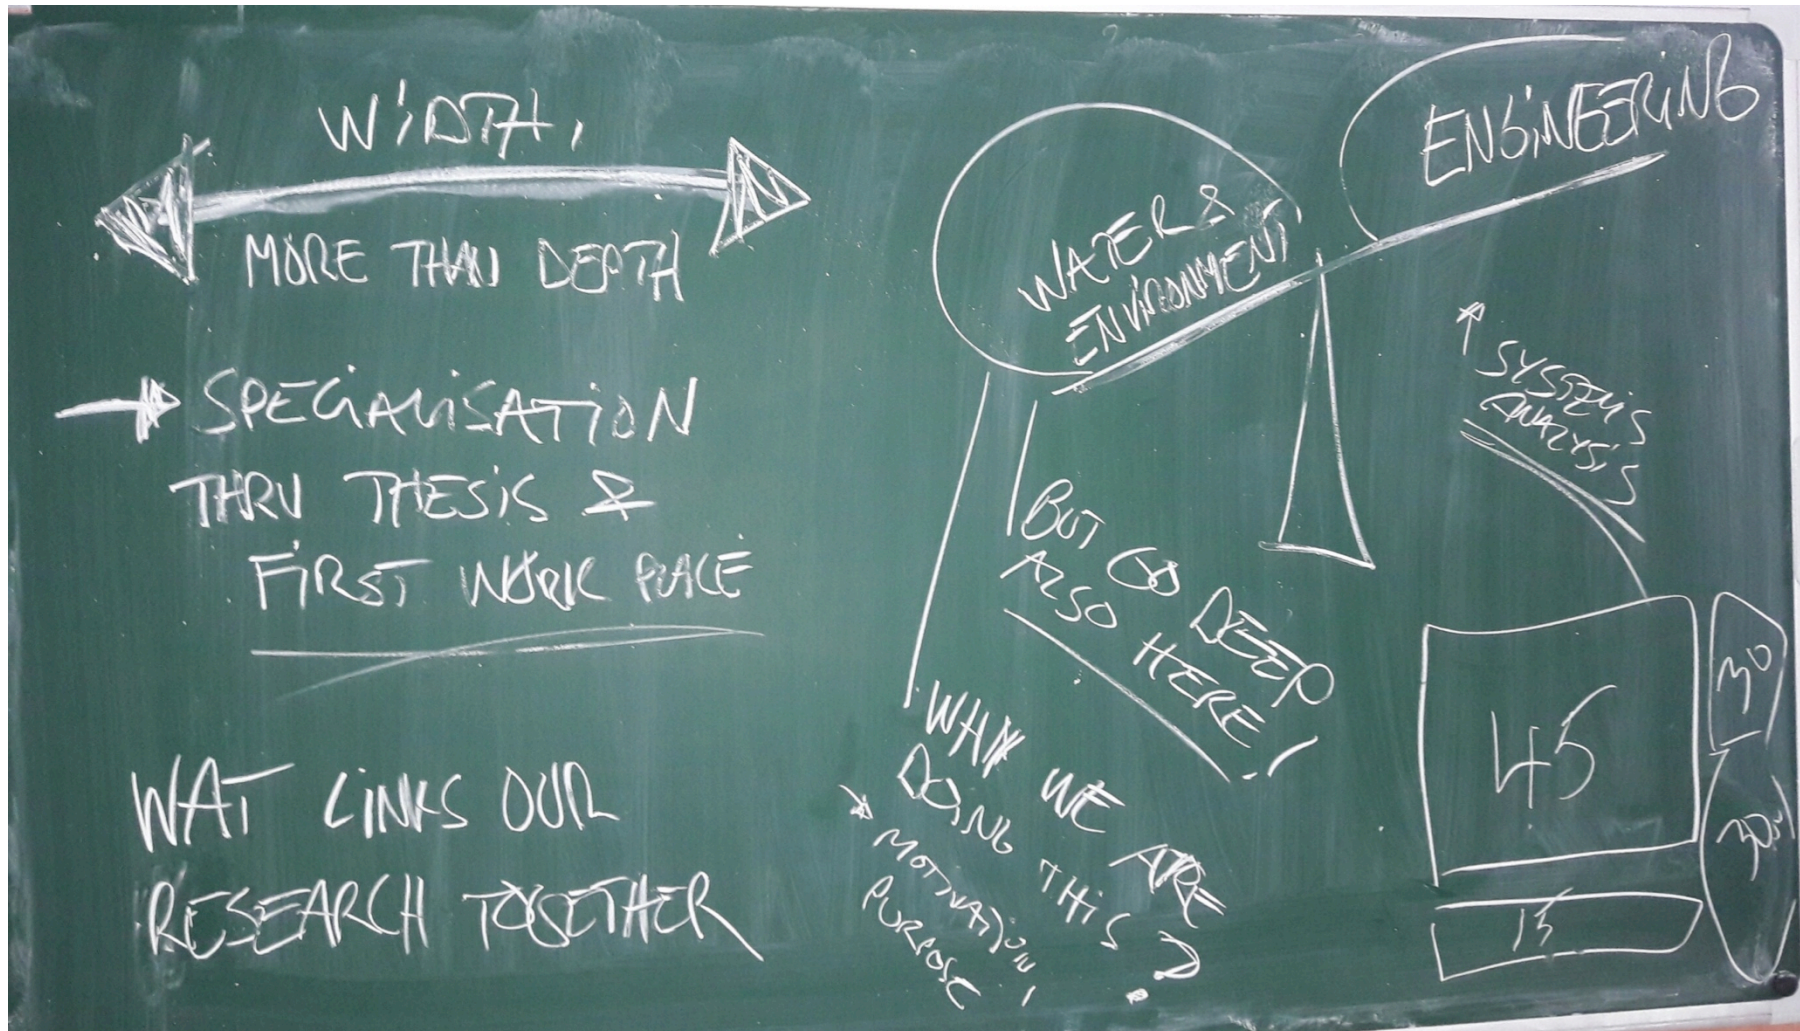 WIDTH,
MORE THAN DEPTH
→ SPECIALISATION
THRU THESIS &
FIRST WORK PLACE
WAT LINKS OUR
RESEARCH TOGETHER
WATER &
ENVIRONMENT
ENGINEERING
SYSTEMS
ANALYSIS
BUT GO DEEP
ALSO HERE!
WHY WE ARE
DOING THIS?
MOTIVATION,
PURPOSE
45
30
30
15